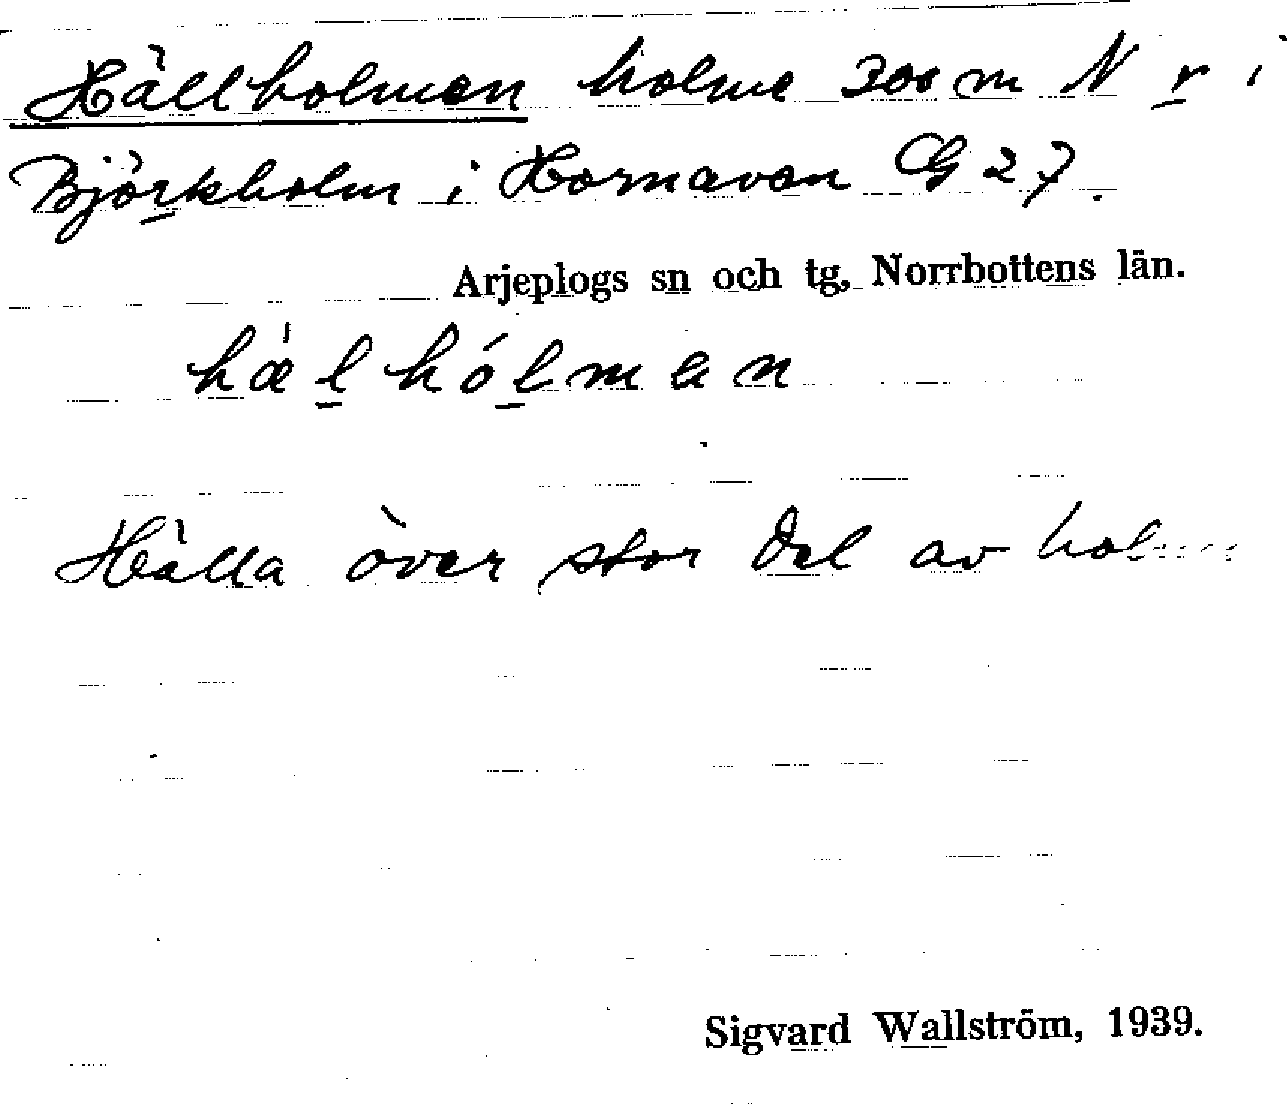 Hällholmen holme 300 m N r i
Björkholm i Hornavan G 27.
Arjeplogs sn och tg, Norrbottens län.
hälhólman
Hälla över stor del av holm
Sigvard Wallström, 1939.